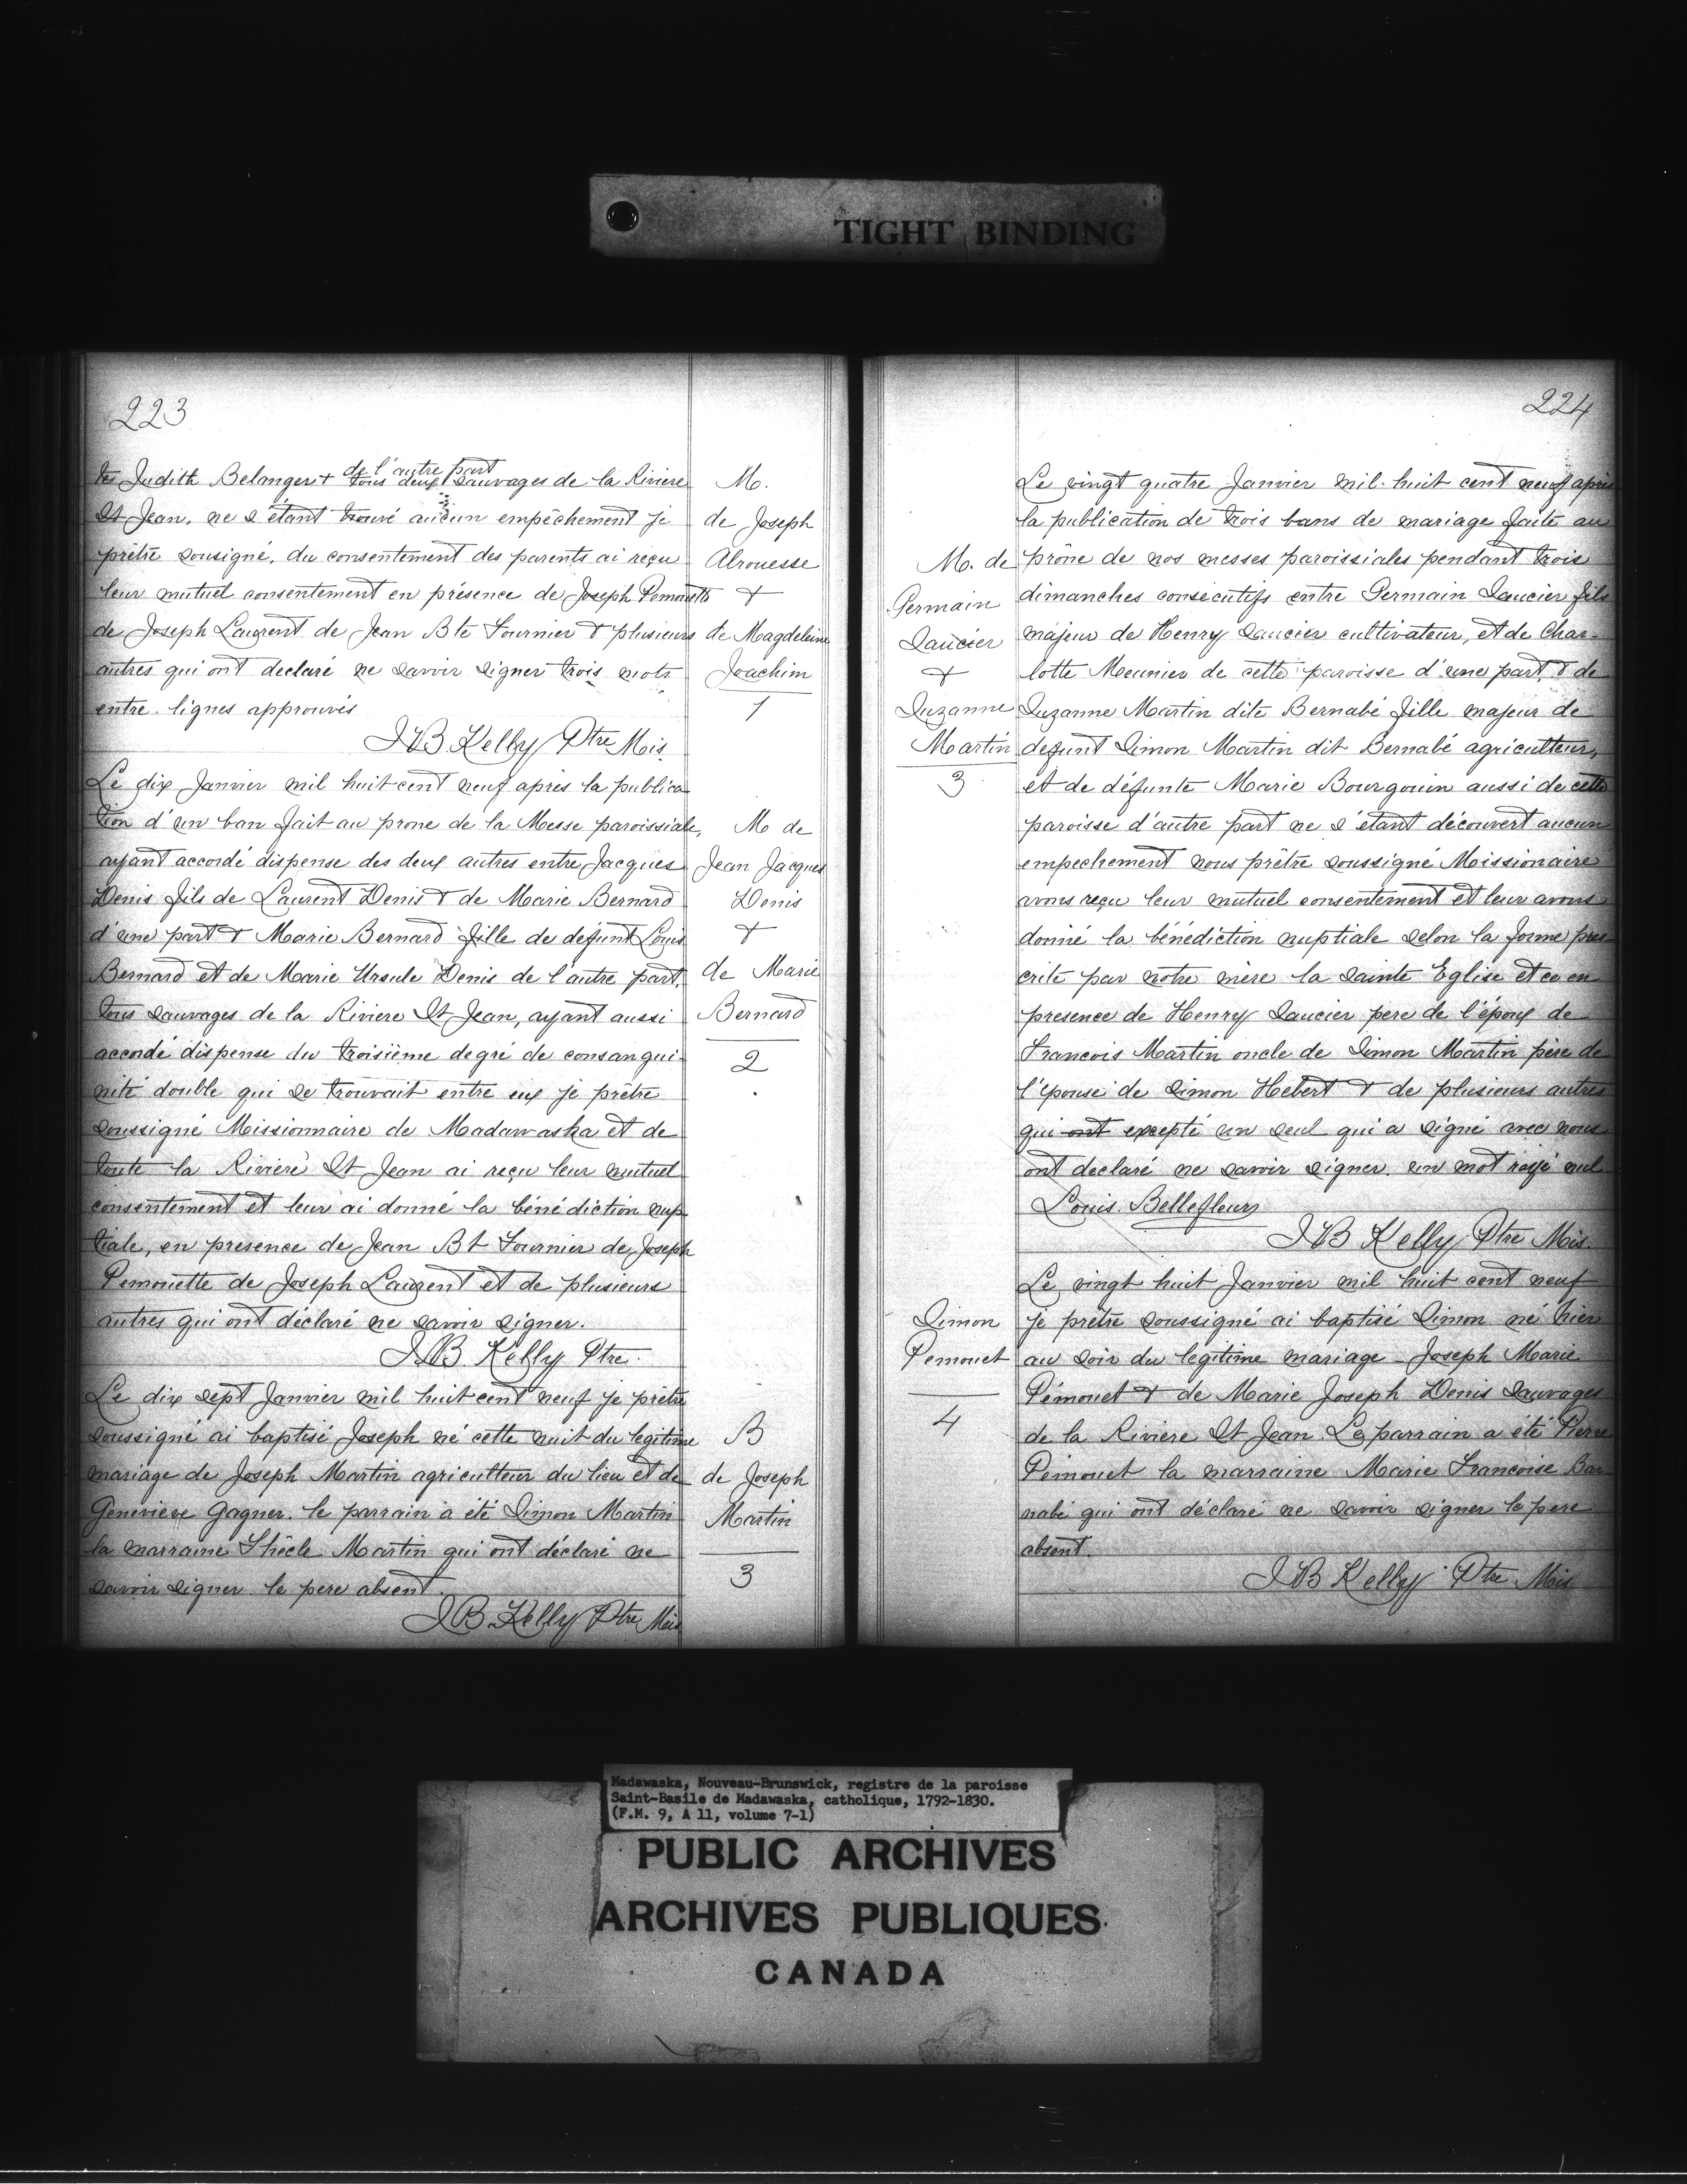 TIGHT BINDING
223
de l'autre part
tes Judith Belanger + tous deux sauvages de la Riviere
St Jean, ne s'étant trouvé aucun empêchement je
prêtre sousigné, du consentement des parents ai reçu
leur mutuel consentement en présence de Joseph Pemouette
de Joseph Laurent de Jean Bte Fournier & plusieurs
autres qui ont declaré ne savoir signer trois mots
entre-lignes approuvés
JB Kelly Ptre Mis.
M.
de Joseph
Alrouesse
&
de Magdeleine
Joachim
1
Le dix Janvier mil huit cent neuf après la publica
tion d'un ban fait au prone de la Messe paroissiale,
ayant accordé dispense des deux autres entre Jacques
Denis fils de Laurent Denis & de Marie Bernard
d'une part & Marie Bernard fille de defunt Louis
Bernard et de Marie Ursule Denis de l'autre part,
tous sauvages de la Riviere St Jean, ayant aussi
accordé dispense du troisième degré de consangui-
nité double qui se trouvait entre eux je prêtre
soussigné Missionnaire de Madawaska et de
toute la Rivière St Jean ai reçu leur mutuel
consentement et leur ai donné la bénédiction nup
tiale, en presence de Jean Bt Fournier de Joseph
Pemouette de Joseph Laurent et de plusieurs
autres qui ont déclaré ne savoir signer.
JB Kelly Ptre.
M de
Jean Jacques
Denis
&
de Marie
Bernard
2
Le dix sept Janvier mil huit cent neuf je prêtre
soussigné ai baptisé Joseph né cette nuit du legitime
mariage de Joseph Martin agriculteur du lieu et de
Genevieve Gagner. le parrain a été Simon Martin
la marraine Thècle Martin qui ont déclaré ne
savoir signer le pere absent.
JB Kelly Ptre Mis
B
de Joseph
Martin
3
224
Le vingt quatre Janvier mil huit cent neuf après
la publication de trois bans de mariage faite au
prône de nos messes paroissiales pendant trois
dimanches consécutifs entre Germain Saucier fils
majeur de Henry Saucier cultivateur, et de Char-
lotte Meunier de cette paroisse d'une part, & de
Suzanne Martin dite Bernabé fille majeur de
defunt Simon Martin dit Bernabé agriculteur,
et de défunte Marie Bourgouin aussi de cette
paroisse d'autre part ne s'étant découvert aucun
empechement nous prêtre soussigné Missionaire
avons reçu leur mutuel consentement et leur avons
donné la bénédiction nuptiale selon la forme pres
crite par notre mère la Sainte Eglise et ce en
presence de Henry Saucier pere de l'époux de
Francois Martin oncle de Simon Martin père de
l'épouse de Simon Hebert & de plusieurs autres
qui ont excepté un seul qui a signé avec nous
ont declaré ne savoir signer. un mot rayé nul
Louis Bellefleur
JB Kelly Ptre Mis.
M. de
Germain
Saucier
&
Suzanne
Martin
3
Le vingt huit Janvier mil huit cent neuf
je prêtre soussigné ai baptisé Simon né hier
au soir du legitime mariage Joseph Marie
Pémouet & de Marie Joseph Denis Sauvages
de la Riviere St Jean. Le parrain a été Pierre
Pemouet la marraine Marie Francoise Bar
nabé qui ont déclaré ne savoir signer le pere
absent.
JB Kelly Ptre Mis
Simon
Pemouet
4
Madawaska, Nouveau-Brunswick, registre de la paroisse
Saint-Basile de Madawaska, catholique, 1792-1830.
(F.M. 9, A 11, volume 7-1)
PUBLIC ARCHIVES
ARCHIVES PUBLIQUES
CANADA